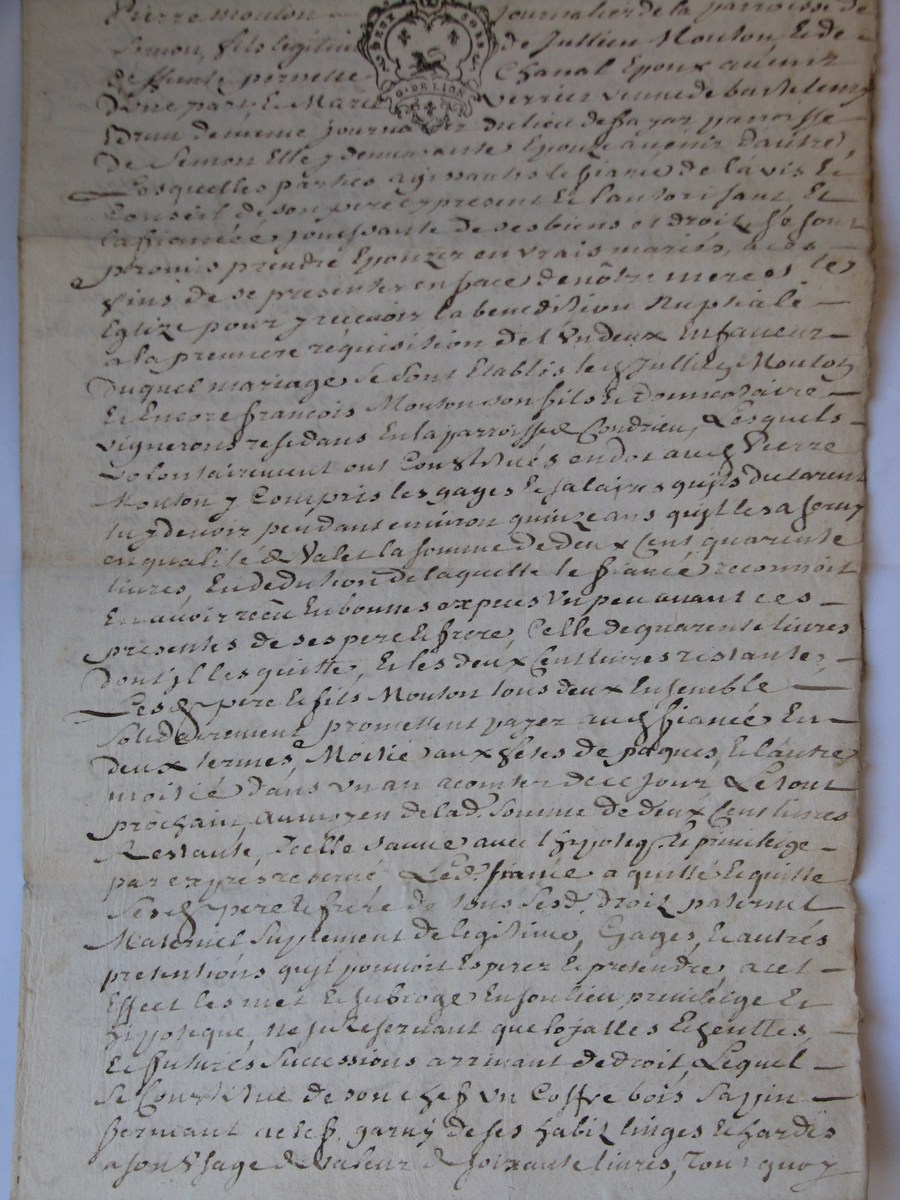 Pierre Mouton journalier de la parroisse de
Simon, fils legitime de Jullien Mouton, Et de
deffunte pernette Chanal Epoux avenir
D'une part, Et Marie Verrier veuve de barthelemy
Brun de meme journalier du lieu de fayar parroisse
de Simon Elle y demeurante Epouze avenir d'autre
Lesquelles parties agissantes le fiancé de l'avis Et
Conseil de son pere cy present Et l'autorisant Et
la fiancée jouissante de ses biens et droit, se sont
promis prendre Epouzer en vrais mariés, a ces
fins de se presenter en face de nôtre mere ste
Eglize pour y recevoir la benediction Nuptiale
a la premiere requisition de l'un deux En faveur
Duquel mariage se sont Etablis led Jullien Mouton
Et Encore françois Mouton son fils Et Donnataire
vignerons residans En la parroisse de Condrieu, Lesquels
volontairement ont Constitués en dot aud Pierre
Mouton y Compris les gages Et salaires qu'ils
luy devoir pendant environ quinze ans qu'il les a servy
en qualité de Valet la somme de deux Cent quarente
livres, En dedution de laquelle le fiancé reconnoit
En avoir reçu En bonnes expeces Un peu avant ces
presentes de ses pere Et frere, Celle de quarente livres
dont il les quitte, Et les deux Cent livres restante,
Lesd pere Et fils Mouton tous deux Ensemble
Solidairement promettent payer aud fiancé En
deux termes Moitié aux fêtes de paques, Et l'autre
moitié dans un an acomter de ce jour, Le tout
prochain, au moyen de lad. somme de deux Cent livres
Restante, Icelle sauve avec l'hypoteq Et privilege
par expres reservé Led. fiancé a quitté Et quitte
Sesd pere Et frere de tous sesd. droit paternel
Maternel suplement de legitime, Gages, Et autres
pretentions qu'il pouvoit Esperer Et pretendre, a cet
Effect les met Et subroge En son lieu privilege Et
hypoteque, ne se reservant que loyalles Echeuttes,
Et futures Successions arrivant de droit, Lequel
se Constitue de son chef un Coffre bois sappin
fermant a clef, garny de ses habit, linges Et hardes
a son Usage de valeur de soixante livres, Tout quoy
DEUX SOLS
G. DE LION